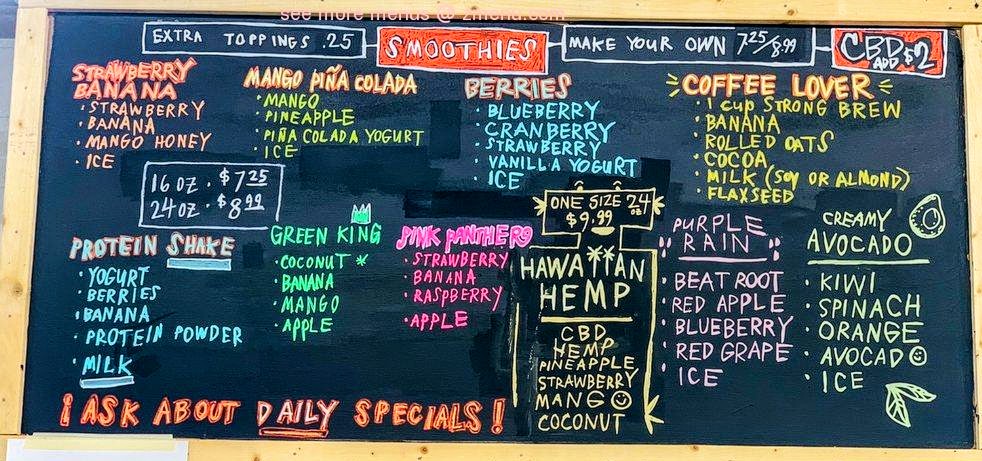 see more menus @ zmenu.com
EXTRA TOPPINGS .25
SMOOTHIES
MAKE YOUR OWN 7 25/8.99
CBD
ADD $2
STRAWBERRY
BANANA
· STRAWBERRY
· BANANA
· MANGO HONEY
· ICE
MANGO PIÑA COLADA
· MANGO
· PINEAPPLE
· PIÑA COLADA YOGURT
· ICE
BERRIES
· BLUEBERRY
· CRANBERRY
· STRAWBERRY
· VANILLA YOGURT
· ICE
COFFEE LOVER
· 1 CUP STRONG BREW
· BANANA
ROLLED OATS
· COCOA
· MILK (SOY OR ALMOND)
· FLAXSEED
16 OZ · $7 25
24 OZ · $8 99
PROTEIN SHAKE
· YOGURT
· BERRIES
· BANANA
· PROTEIN POWDER
· MILK
GREEN KING
· COCONUT *
· BANANA
· MANGO
· APPLE
PINK PANTHER
· STRAWBERRY
· BANANA
· RASPBERRY
· APPLE
ONE SIZE 24 OZ
$9.99
HAWAIIAN
HEMP
CBD
HEMP
PINEAPPLE
STRAWBERRY
MANGO
COCONUT
PURPLE
RAIN
· BEAT ROOT
· RED APPLE
· BLUEBERRY
· RED GRAPE
· ICE
CREAMY
AVOCADO
· KIWI
· SPINACH
· ORANGE
· AVOCADO
· ICE
¡ ASK ABOUT DAILY SPECIALS !